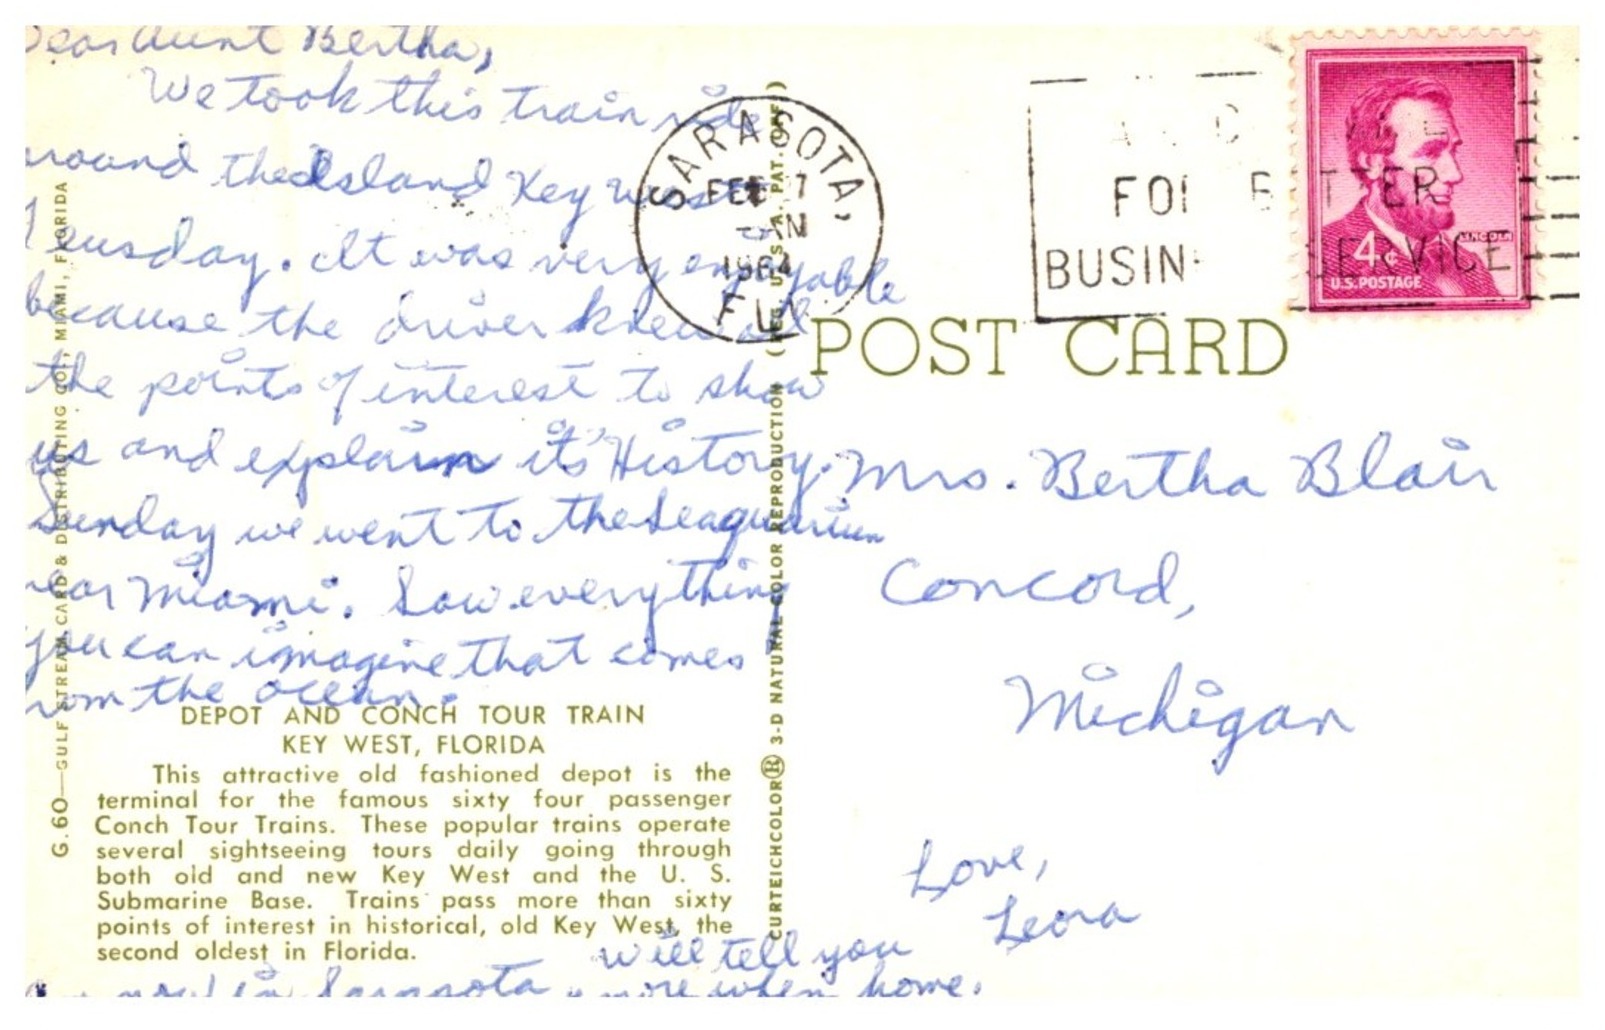 Dear Aunt Bertha,
We took this train ride
around the Island Key West
Teusday. It was very enjoyable
because the driver knew all
the points of interest to show
us and explain its' History.
Sunday we went to the Seaquarium
near Miami. Saw everything
you can imagine that comes
from the ocean.
DEPOT AND CONCH TOUR TRAIN
KEY WEST, FLORIDA
This attractive old fashioned depot is the
terminal for the famous sixty four passenger
Conch Tour Trains. These popular trains operate
several sightseeing tours daily going through
both old and new Key West and the U. S.
Submarine Base. Trains pass more than sixty
points of interest in historical, old Key West, the
second oldest in Florida.
now in Sarasota
will tell you
more when home.
G.60—GULF STREAM CARD & DISTRIBUTING CO., MIAMI, FLORIDA
CURTEICHCOLOR® 3-D NATURAL COLOR REPRODUCTION (REG. U.S.A. PAT. OFF.)
SARASOTA,
FEB 7
AM
1964
FLA
FOR BETTER
BUSINESS SERVICE
LINCOLN
4¢
U.S. POSTAGE
POST CARD
Mrs. Bertha Blair
Concord,
Michigan
Love,
Leora